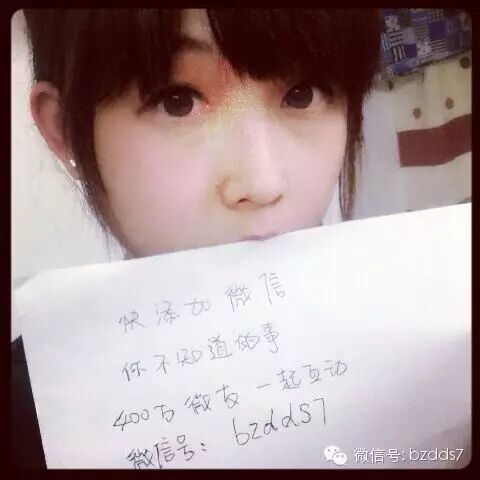 快添加微信
你不知道的事
400万微友一起互动
微信号：bzdds7
微信号: bzdds7